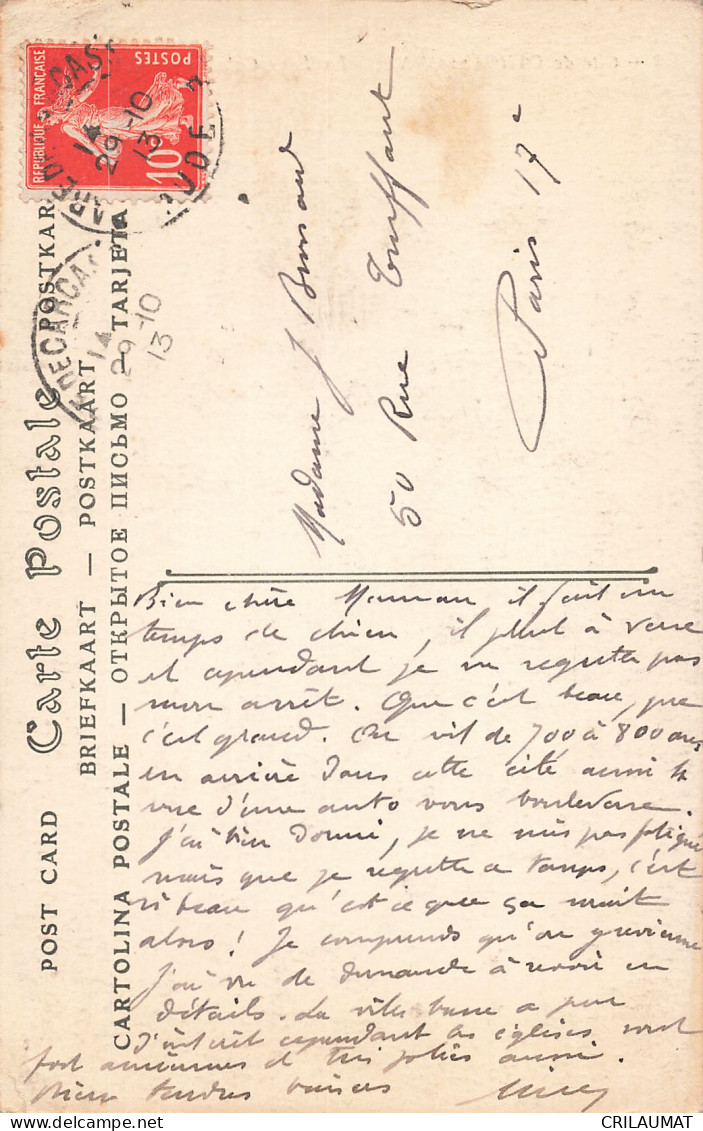 Carte Postale
POST CARD
BRIEFKAART — POSTKAART — POSTKAR
CARTOLINA POSTALE — ОТКРЫТОЕ ПИСЬМО — TARJETA
REPUBLIQUE FRANÇAISE
POSTES
10
14
29-10
13
AUDE
GARE DE CARCAS
14
29-10
13
Madame J
50 Rue Truffaut
Paris 17e
Bien chère Maman il fait un
temps de chien, il pleut à verse
et cependant je ne regrette pas
mon arrêt. Que c'est beau, que
c'est grand. On vit de 700 à 800 ans
en arrière dans cette cité aussi la
vue d'une auto vous bouleverse.
J'ai bien dormi, je ne suis pas fatigué
mais que je regrette le temps, c'est
si beau qu'est ce que ça serait
alors! Je comprends qu'on y revienne
J'ai vu de demande à revoir en
détails. La ville basse a peu
d'intérêt cependant les églises sont
fort anciennes et très jolies aussi.
Bien tendres baisers
CRILAUMAT